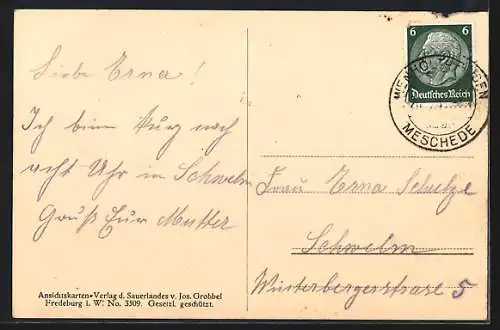 Liebe Erna!
Ich bin kurz nach
acht Uhr in Schwelm
Gruß Eure Mutter
Ansichtskarten-Verlag d. Sauerlandes v. Jos. Grobbel
Fredeburg i. W. No. 3509. Gesetzl. geschützt.
6 6
Deutsches Reich
MESCHEDE
Frau Erna Schulze
Schwelm
Winterbergerstrase 5